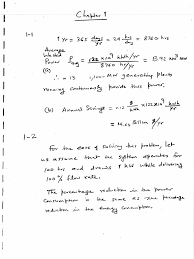 Chapter 1
1-1
1 yr = 365 days/yr × 24 hrs/day = 8760 hrs
Average
Power
(a)
∴ 13 1,100-MW generating plants
running continuously provide this power.
(b) Annual Savings =
1-2
For the ease of solving this problem, let
us assume that the system operates for
100 hrs and draws 1 kW while delivering
100 % flow rate.
The percentage reduction in the power
consumption is the same as the percentage
reduction in the energy consumption.